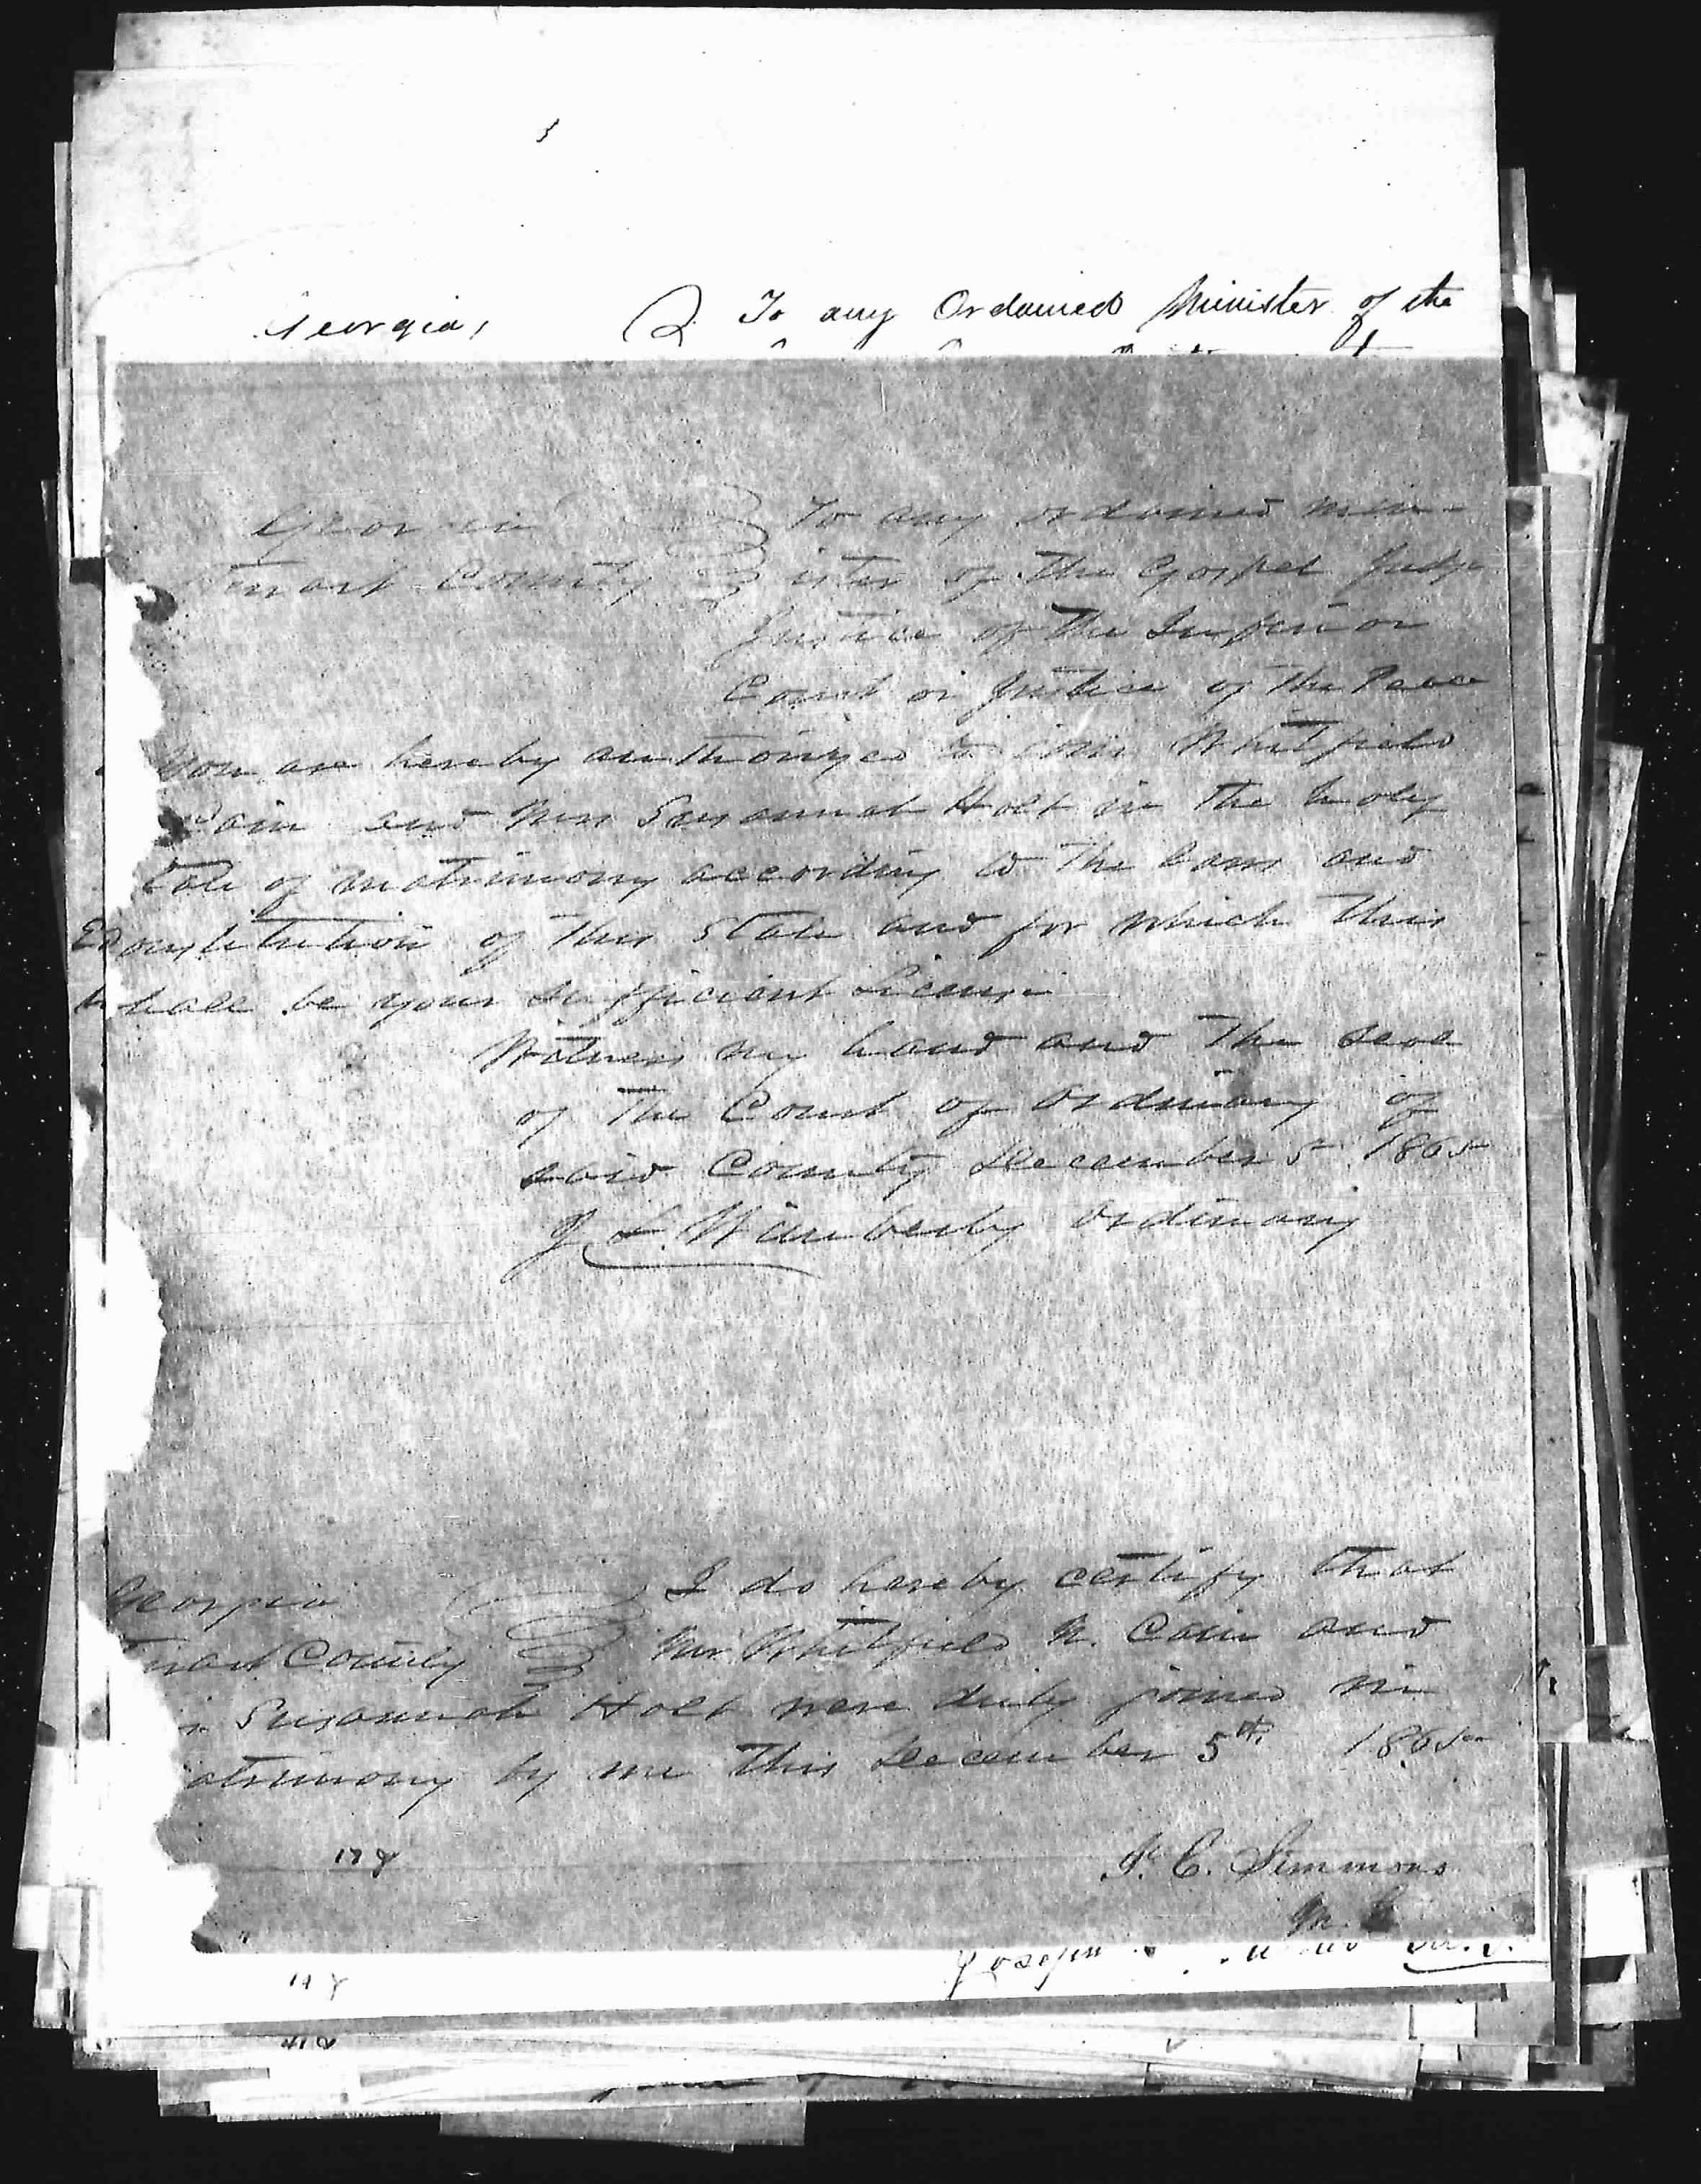 Georgia, To any Ordained Minister of the
Georgia To any ordained min-
County ister of the Gospel Judge
Justice of the Inferior
Court or Justice of the Peace
You are hereby authorized to join Whitfield
Cain and Mrs Susannah Holt in the holy
state of matrimony according to the laws and
Constitution of this State and for which this
shall be your sufficient License
Witness my hand and the seal
of the Court of ordinary of
said County December 5 1865
J L. Wimberly ordinary
Georgia I do hereby certify that
County Mr Whitfield N. Cain and
Susannah Holt were duly joined in
atrimony by me this December 5th 1865
178
J. C. Simmons
M. G
Joseph